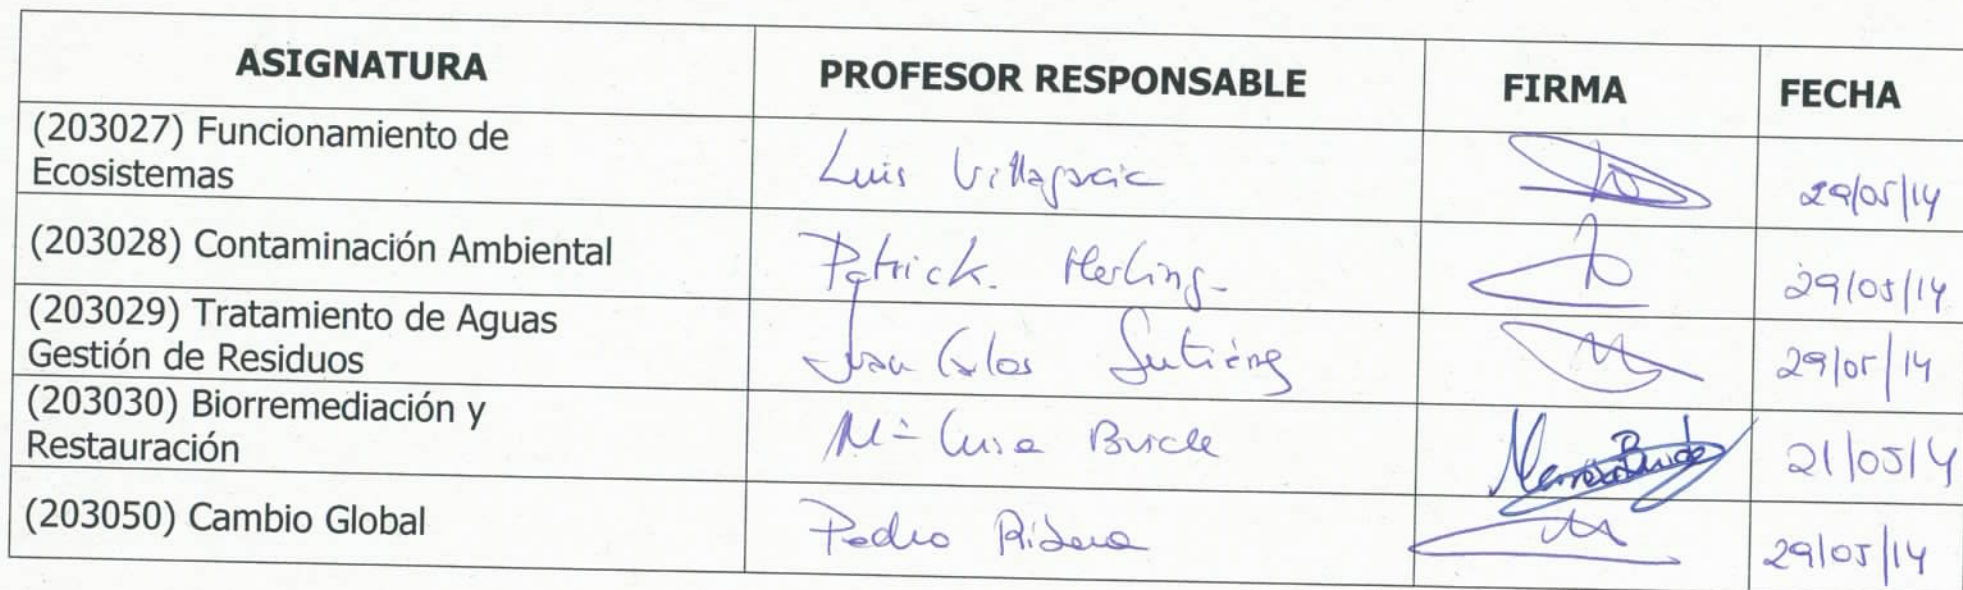 ASIGNATURA PROFESOR RESPONSABLE FIRMA FECHA
(203027) Funcionamiento de
Ecosistemas
Luis 29/05/14
(203028) Contaminación Ambiental Patrick. 29/05/14
(203029) Tratamiento de Aguas
Gestión de Residuos
Juan Carlos 29/05/14
(203030) Biorremediación y
Restauración
Mª Luisa 21/05/14
(203050) Cambio Global Pedro 29/05/14